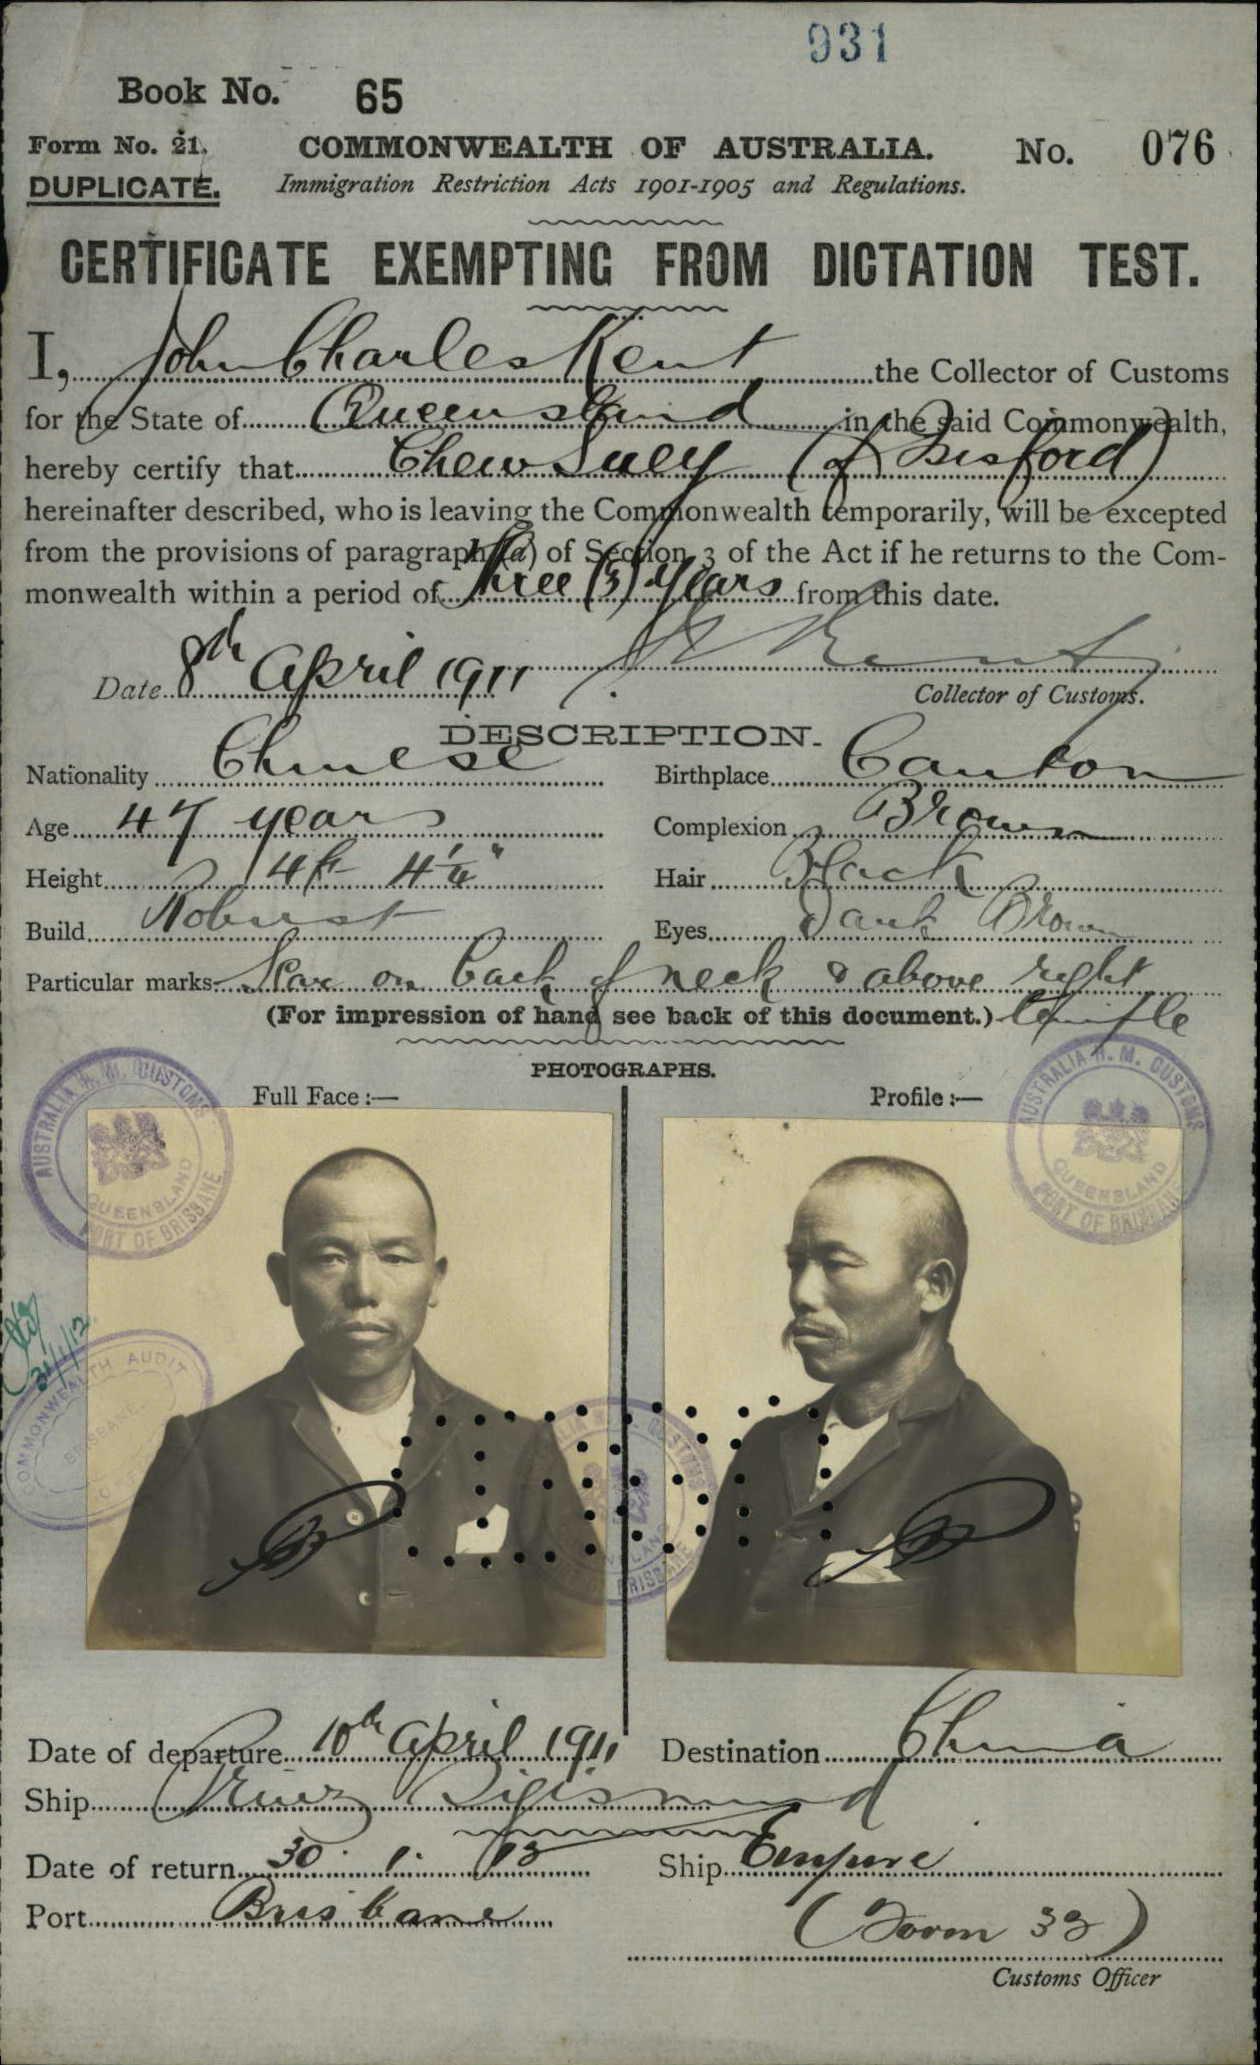 931
Book No. 65
Form No. 21. COMMONWEALTH OF AUSTRALIA. No. 076
DUPLICATE. Immigration Restriction Acts 1901-1905 and Regulations.
CERTIFICATE EXEMPTING FROM DICTATION TEST.
I, John Charles Kent the Collector of Customs
for the State of Queensland in the said Commonwealth,
hereby certify that Chew Suey (of Gisford)
hereinafter described, who is leaving the Commonwealth temporarily, will be excepted
from the provisions of paragraph (a) of Section 3 of the Act if he returns to the Com-
monwealth within a period of three (3) years from this date.
Date 8th April 1911 Kent
Collector of Customs.
DESCRIPTION.
Nationality Chinese Birthplace Canton
Age 47 years Complexion Brown
Height 4ft 4¼" Hair Black
Build Robust Eyes Dark Brown
Particular marks Scar on back of neck & above right
(For impression of hand see back of this document.) temple
PHOTOGRAPHS.
Full Face:— Profile:—
AUSTRALIA H. M. CUSTOMS QUEENSLAND PORT OF BRISBANE
AUSTRALIA H. M. CUSTOMS QUEENSLAND PORT OF BRISBANE
31/1/12
COMMONWEALTH AUDIT BRISBANE
CUSTOMS BRISBANE
Date of departure 10th April 1911 Destination China
Ship Prinz Sigismund
Date of return 30. 1. 12 Ship Empire
Port Brisbane (Form 32)
Customs Officer